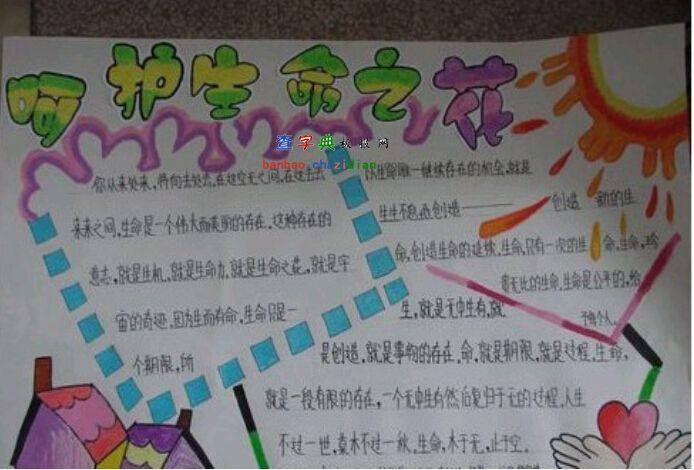 呵护生命之花
查字典板报网
banbao.chazidian
你从来处来，将向去处去，在这空无之间，在这去去
来来之间，生命是一个伟大而美妙的存在，这种存在的
意志，就是生机，就是生命力，就是生命之花，就是宇
宙的奇迹，因为生而有命，生命只是一
个期限，所
以生命唯一继续存在的机会，就是
生生不息，而创造 创造 新的生
命，创造生命的延续，生命，只有一次的生命，生命，珍
贵无比的生命，生命是公平的，给
生，就是无中生有，就 予每个人，
是创造，就是事物的存在，命，就是期限，就是过程，生命，
就是一段有限的存在，一个无中生有然后复归于无的过程，人生
不过一世，草木不过一秋，生命，木于无，止于空。